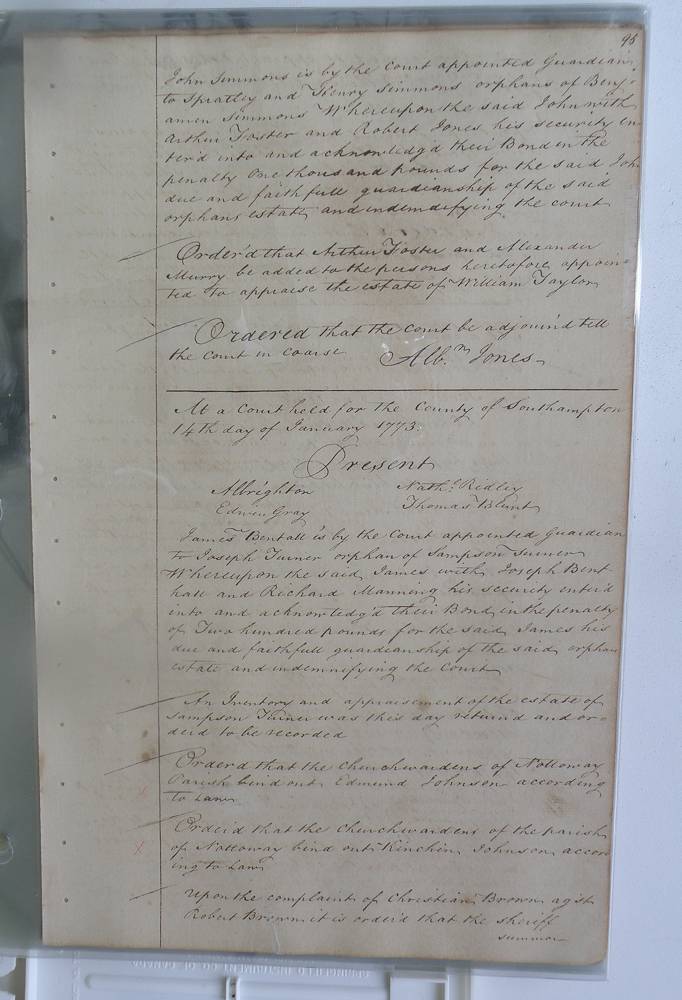 95
John Simmons is by the Court appointed Guardian
to Spratley and Henry Simmons orphans of Benj-
amen Simmons Whereupon the said John with
Arthur Foster and Robert Jones his security en
ter'd into and acknowledg'd their Bond in the
penalty One thousand pounds for the said John
due and faithfull guardianship of the said
orphans estate and indemdifying the court
Order'd that Arthur Foster and Alexander
Murry be added to the persons heretofore appoin=
ted to appraise the estate of William Taylor
Ordered that the Court be adjourn'd till
the Court in coarse Alb.n Jones
At a Court held for the County of Southampton
14th day of January 1773:
Present
Albrighton Nath.l Ridley
Edwin Gray Thomas Blunt
James Bentall is by the Court appointed Guardian
to Joseph Turner orphan of Sampson Turner
Whereupon the said James with Joseph Bent
hall and Richard Manning his security enter'd
into and acknowledg'd their Bond in the penalty
of Two hundred pounds for the said James his
due and faithfull guardianship of the said orphans
estate and indemnifying the Court
An Inventory and appraisement of the estate of
Sampson Turner was this day return'd and or=
der'd to be recorded
Order'd that the Churchwardens of Nottoway
Parish bind out Edmund Johnson according
to Law
Order'd that the Churchwardens of the parish
of Nottoway bind out Kinchin Johnson accor
ing to Law
Upon the complaint of Christian Brown agst
Robert Brown it is order'd that the sheriff
summon